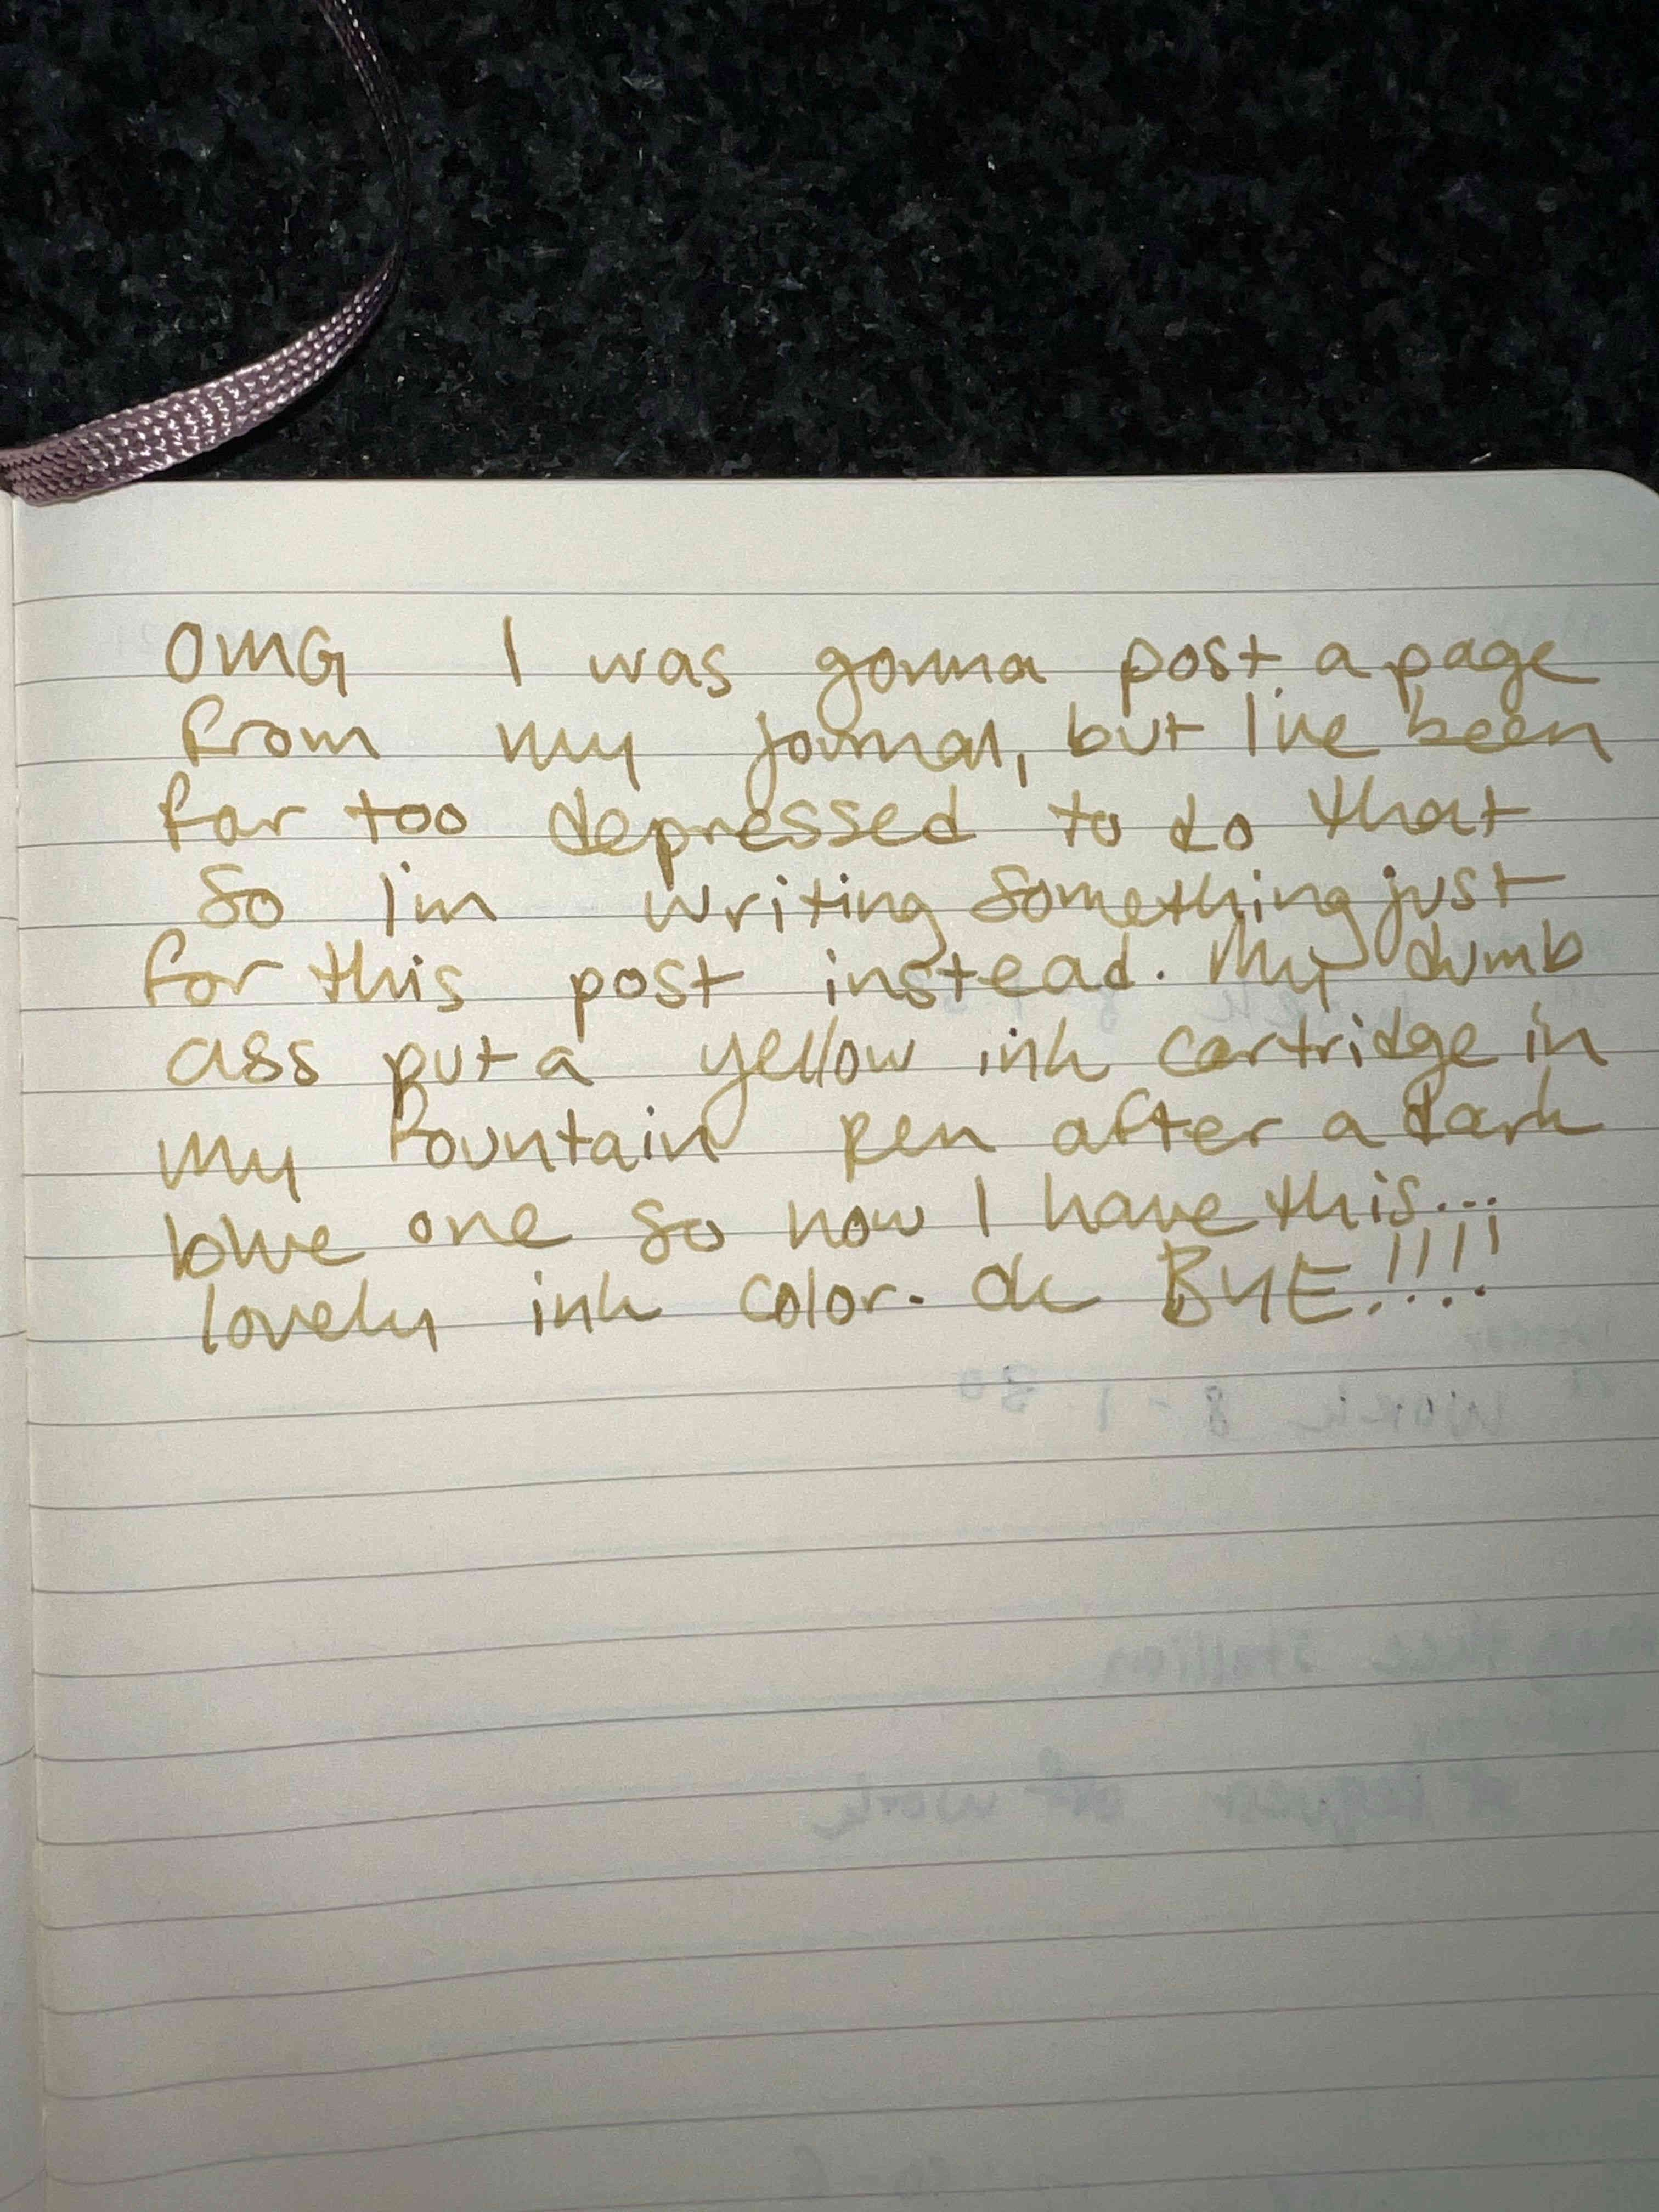 OMG I was gonna post a page
from my journal, but I've been
far too depressed to do that
so I'm writing something just
for this post instead. My dumb
ass put a yellow ink cartridge in
my fountain pen after a dark
blue one so now I have this...
lovely ink color. Ok BYE!!!!
Work 8-1:30
Stallion
off work